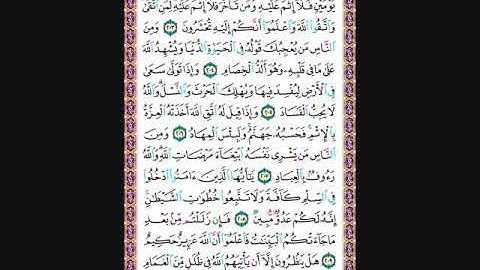 يَوْمَيْنِ فَلَآ إِثْمَ عَلَيْهِ وَمَن تَأَخَّرَ فَلَآ إِثْمَ عَلَيْهِ لِمَنِ ٱتَّقَىٰ
وَٱتَّقُوا۟ ٱللَّهَ وَٱعْلَمُوٓا۟ أَنَّكُمْ إِلَيْهِ تُحْشَرُونَ ٢٠٣ وَمِنَ
ٱلنَّاسِ مَن يُعْجِبُكَ قَوْلُهُۥ فِى ٱلْحَيَوٰةِ ٱلدُّنْيَا وَيُشْهِدُ ٱللَّهَ
عَلَىٰ مَا فِى قَلْبِهِۦ وَهُوَ أَلَدُّ ٱلْخِصَامِ ٢٠٤ وَإِذَا تَوَلَّىٰ سَعَىٰ
فِى ٱلْأَرْضِ لِيُفْسِدَ فِيهَا وَيُهْلِكَ ٱلْحَرْثَ وَٱلنَّسْلَ وَٱللَّهُ
لَا يُحِبُّ ٱلْفَسَادَ ٢٠٥ وَإِذَا قِيلَ لَهُ ٱتَّقِ ٱللَّهَ أَخَذَتْهُ ٱلْعِزَّةُ
بِٱلْإِثْمِ فَحَسْبُهُۥ جَهَنَّمُ وَلَبِئْسَ ٱلْمِهَادُ ٢٠٦ وَمِنَ
ٱلنَّاسِ مَن يَشْرِى نَفْسَهُ ٱبْتِغَآءَ مَرْضَاتِ ٱللَّهِ وَٱللَّهُ
رَءُوفٌۢ بِٱلْعِبَادِ ٢٠٧ يَٰٓأَيُّهَا ٱلَّذِينَ ءَامَنُوا۟ ٱدْخُلُوا۟
فِى ٱلسِّلْمِ كَآفَّةً وَلَا تَتَّبِعُوا۟ خُطُوَٰتِ ٱلشَّيْطَٰنِ
إِنَّهُۥ لَكُمْ عَدُوٌّ مُّبِينٌ ٢٠٨ فَإِن زَلَلْتُم مِّنۢ بَعْدِ
مَا جَآءَتْكُمُ ٱلْبَيِّنَٰتُ فَٱعْلَمُوٓا۟ أَنَّ ٱللَّهَ عَزِيزٌ حَكِيمٌ
٢٠٩ هَلْ يَنظُرُونَ إِلَّآ أَن يَأْتِيَهُمُ ٱللَّهُ فِى ظُلَلٍ مِّنَ ٱلْغَمَامِ